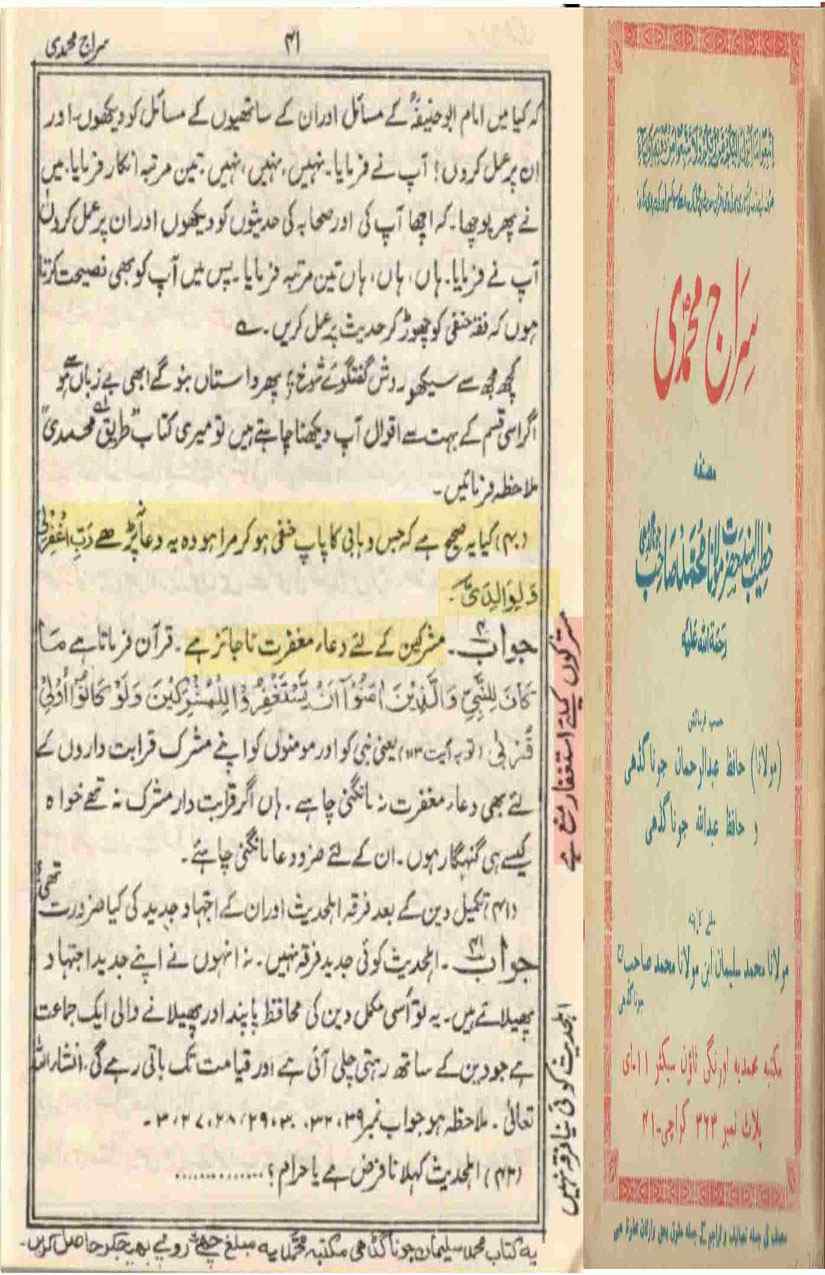 سراج محمدی
۴۱
کہ کیا میں امام ابو حنیفہؒ کے مسائل اور ان کے ساتھیوں کے مسائل کو دیکھوں۔ اور
ان پر عمل کروں؟ آپ نے فرمایا۔ نہیں، نہیں، نہیں، تین مرتبہ انکار فرمایا۔ میں
نے پھر پوچھا۔ کہ اچھا آپ کی اور صحابہ کی حدیثوں کو دیکھوں اور ان پر عمل کروں
آپ نے فرمایا۔ ہاں، ہاں، ہاں تین مرتبہ فرمایا۔ پس میں آپ کو بھی نصیحت کرتا
ہوں کہ فقہ حنفی کو چھوڑ کر حدیث پر عمل کریں۔ ؎
کچھ مجھ سے سیکھو روش گفتگوئے شوخ؛ پھر داستاں بنو گے ابھی بے زباں ہو
اگر اسی قسم کے بہت سے اقوال آپ دیکھنا چاہتے ہیں تو میری کتاب "طریق محمدی"
ملاحظہ فرمائیں۔
(۴۰) کیا یہ صحیح ہے کہ جس وہابی کا باپ حنفی ہو کر مرا ہو وہ یہ دعا نہ پڑھے رَبِّ اغْفِرْلِیْ
وَلِوَالِدَیَّ۔
جواب ۴۰۔ مشرکین کے لئے دعاء مغفرت ناجائز ہے۔ قرآن فرماتا ہے مَا
كَانَ لِلنَّبِيِّ وَالَّذِيْنَ اٰمَنُوْٓا اَنْ يَّسْتَغْفِرُوْا لِلْمُشْرِكِيْنَ وَلَوْ كَانُوْٓا اُولِيْ
قُرْبٰى (توبہ آیت ۱۱۳) یعنی نبی کو اور مومنوں کو اپنے مشرک قرابت داروں کے
لئے بھی دعاء مغفرت نہ مانگنی چاہے۔ ہاں اگر قرابت دار مشرک نہ تھے خواہ
کیسے ہی گنہگار ہوں۔ ان کے لئے ضرور دعا مانگنی چاہئے۔
(۴۱) تکمیل دین کے بعد فرقہ اہلحدیث اور ان کے اجتہاد جدید کی کیا ضرورت تھی؟
جواب ۴۱۔ اہلحدیث کوئی جدید فرقہ نہیں۔ نہ انہوں نے اپنے جدید اجتہاد
پھیلاتے ہیں۔ یہ تو اُسی مکمل دین کی محافظ پابند اور پھیلانے والی ایک جماعت
ہے جو دین کے ساتھ رہتی چلی آئی ہے اور قیامت تک باقی رہے گی۔ انشاء اللہ
تعالیٰ۔ ملاحظہ ہو جواب نمبر ۳۹، ۳۲، ۳۰، ۲۹/۲۸، ۲۷، ۳۔
(۴۲) اہلحدیث کہلانا فرض ہے یا حرام؟..............
مشرکوں کیلئے استغفار منع ہے
اہلحدیث کوئی نیا فرقہ نہیں
یہ کتاب محمد سلیمان جونا گڈھی مکتبہ محمدیہ مبلغ چھ روپے بھیجکر حاصل کریں۔
سراج محمدی
مصنفہ
خطیب الہند حضرت مولانا محمد صاحب جوناگڈھی
رحمۃ اللہ علیہ
حسب فرمائش
(مولانا) حافظ عبدالرحمان جوناگڈھی
و حافظ عبداللہ جوناگڈھی
ملنے کا پتہ
مولانا محمد سلیمان ابن مولانا محمد صاحب جوناگڈھی
مکتبہ محمدیہ اورنگی ٹاؤن سیکٹر ۱۱ـای
پلاٹ نمبر ۳۶۳ کراچی-۴۱